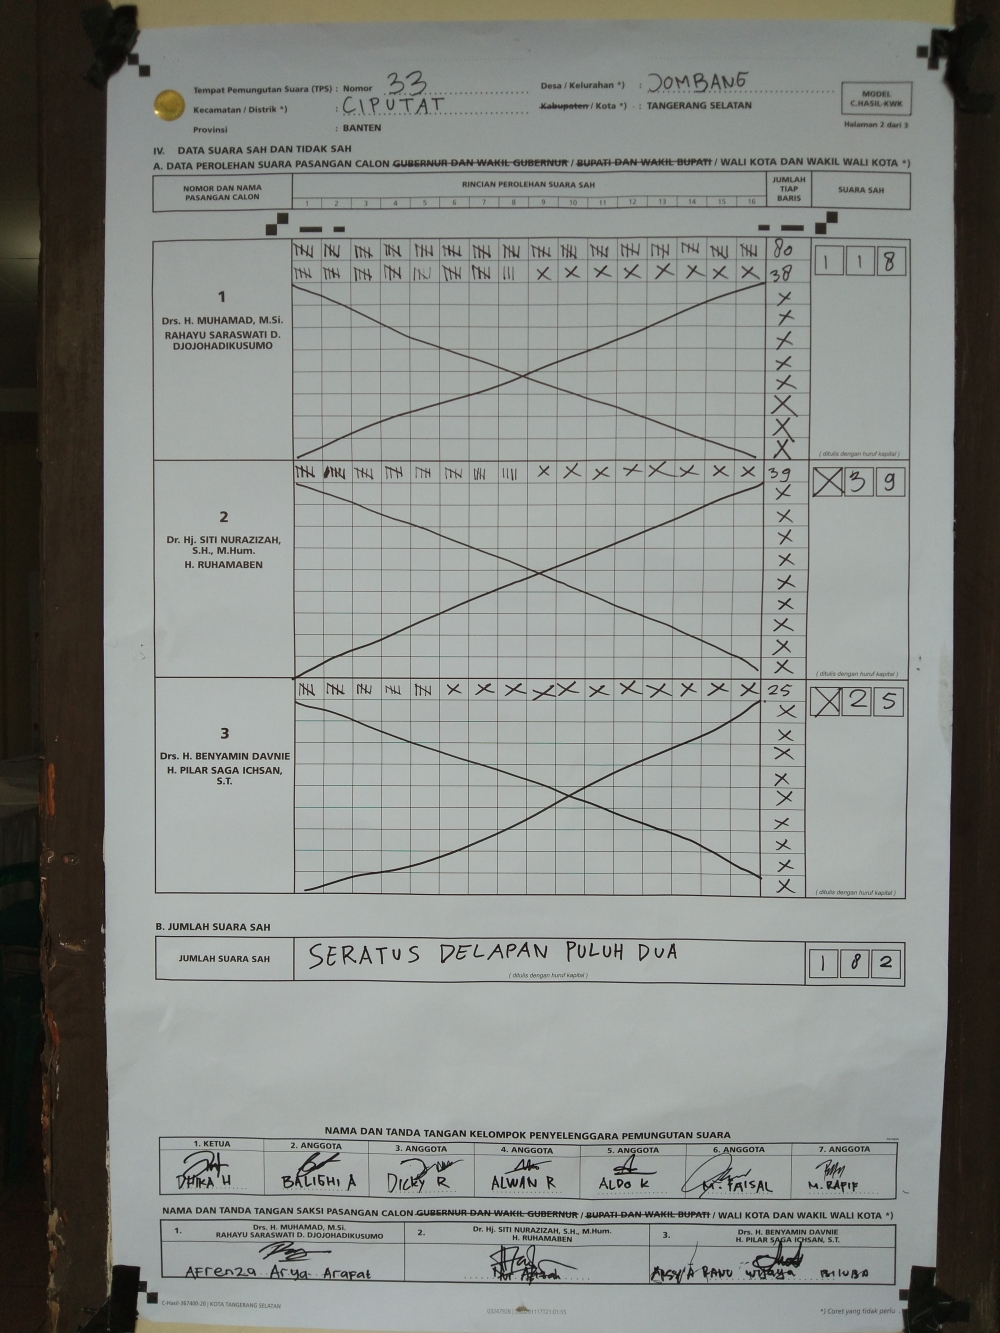 Tempat Pemungutan Suara (TPS) : Nomor 33
Desa / Kelurahan *) : JOMBANG
Kecamatan / Distrik *) : CIPUTAT
Kabupaten / Kota *) : TANGERANG SELATAN
Provinsi : BANTEN
MODEL
C.HASIL-KWK
Halaman 2 dari 3
IV. DATA SUARA SAH DAN TIDAK SAH
A. DATA PEROLEHAN SUARA PASANGAN CALON GUBERNUR DAN WAKIL GUBERNUR / BUPATI DAN WAKIL BUPATI / WALI KOTA DAN WAKIL WALI KOTA *)
NOMOR DAN NAMA
PASANGAN CALON
RINCIAN PEROLEHAN SUARA SAH
JUMLAH
TIAP
BARIS
SUARA SAH
1 2 3 4 5 6 7 8 9 10 11 12 13 14 15 16
80
38
1 1 8
1
Drs. H. MUHAMAD, M.Si.
RAHAYU SARASWATI D.
DJOJOHADIKUSUMO
( ditulis dengan huruf kapital )
39
X 3 9
2
Dr. Hj. SITI NURAZIZAH,
S.H., M.Hum.
H. RUHAMABEN
( ditulis dengan huruf kapital )
25
X 2 5
3
Drs. H. BENYAMIN DAVNIE
H. PILAR SAGA ICHSAN,
S.T.
( ditulis dengan huruf kapital )
B. JUMLAH SUARA SAH
JUMLAH SUARA SAH
SERATUS DELAPAN PULUH DUA
( ditulis dengan huruf kapital )
1 8 2
NAMA DAN TANDA TANGAN KELOMPOK PENYELENGGARA PEMUNGUTAN SUARA
1. KETUA 2. ANGGOTA 3. ANGGOTA 4. ANGGOTA 5. ANGGOTA 6. ANGGOTA 7. ANGGOTA
DHIKA H BALIGHI A DICKY R ALWAN R ALDO K M. FAISAL M. RAFIF
NAMA DAN TANDA TANGAN SAKSI PASANGAN CALON GUBERNUR DAN WAKIL GUBERNUR / BUPATI DAN WAKIL BUPATI / WALI KOTA DAN WAKIL WALI KOTA *)
1. Drs. H. MUHAMAD, M.Si.
RAHAYU SARASWATI D. DJOJOHADIKUSUMO
2. Dr. Hj. SITI NURAZIZAH, S.H., M.Hum.
H. RUHAMABEN
3. Drs. H. BENYAMIN DAVNIE
H. PILAR SAGA ICHSAN, S.T.
Afrenza Arya Arafat
C-Hasil-367400-20 | KOTA TANGERANG SELATAN
*) Coret yang tidak perlu